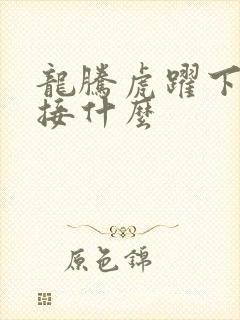 龍騰虎躍下
接什麼
原色錦